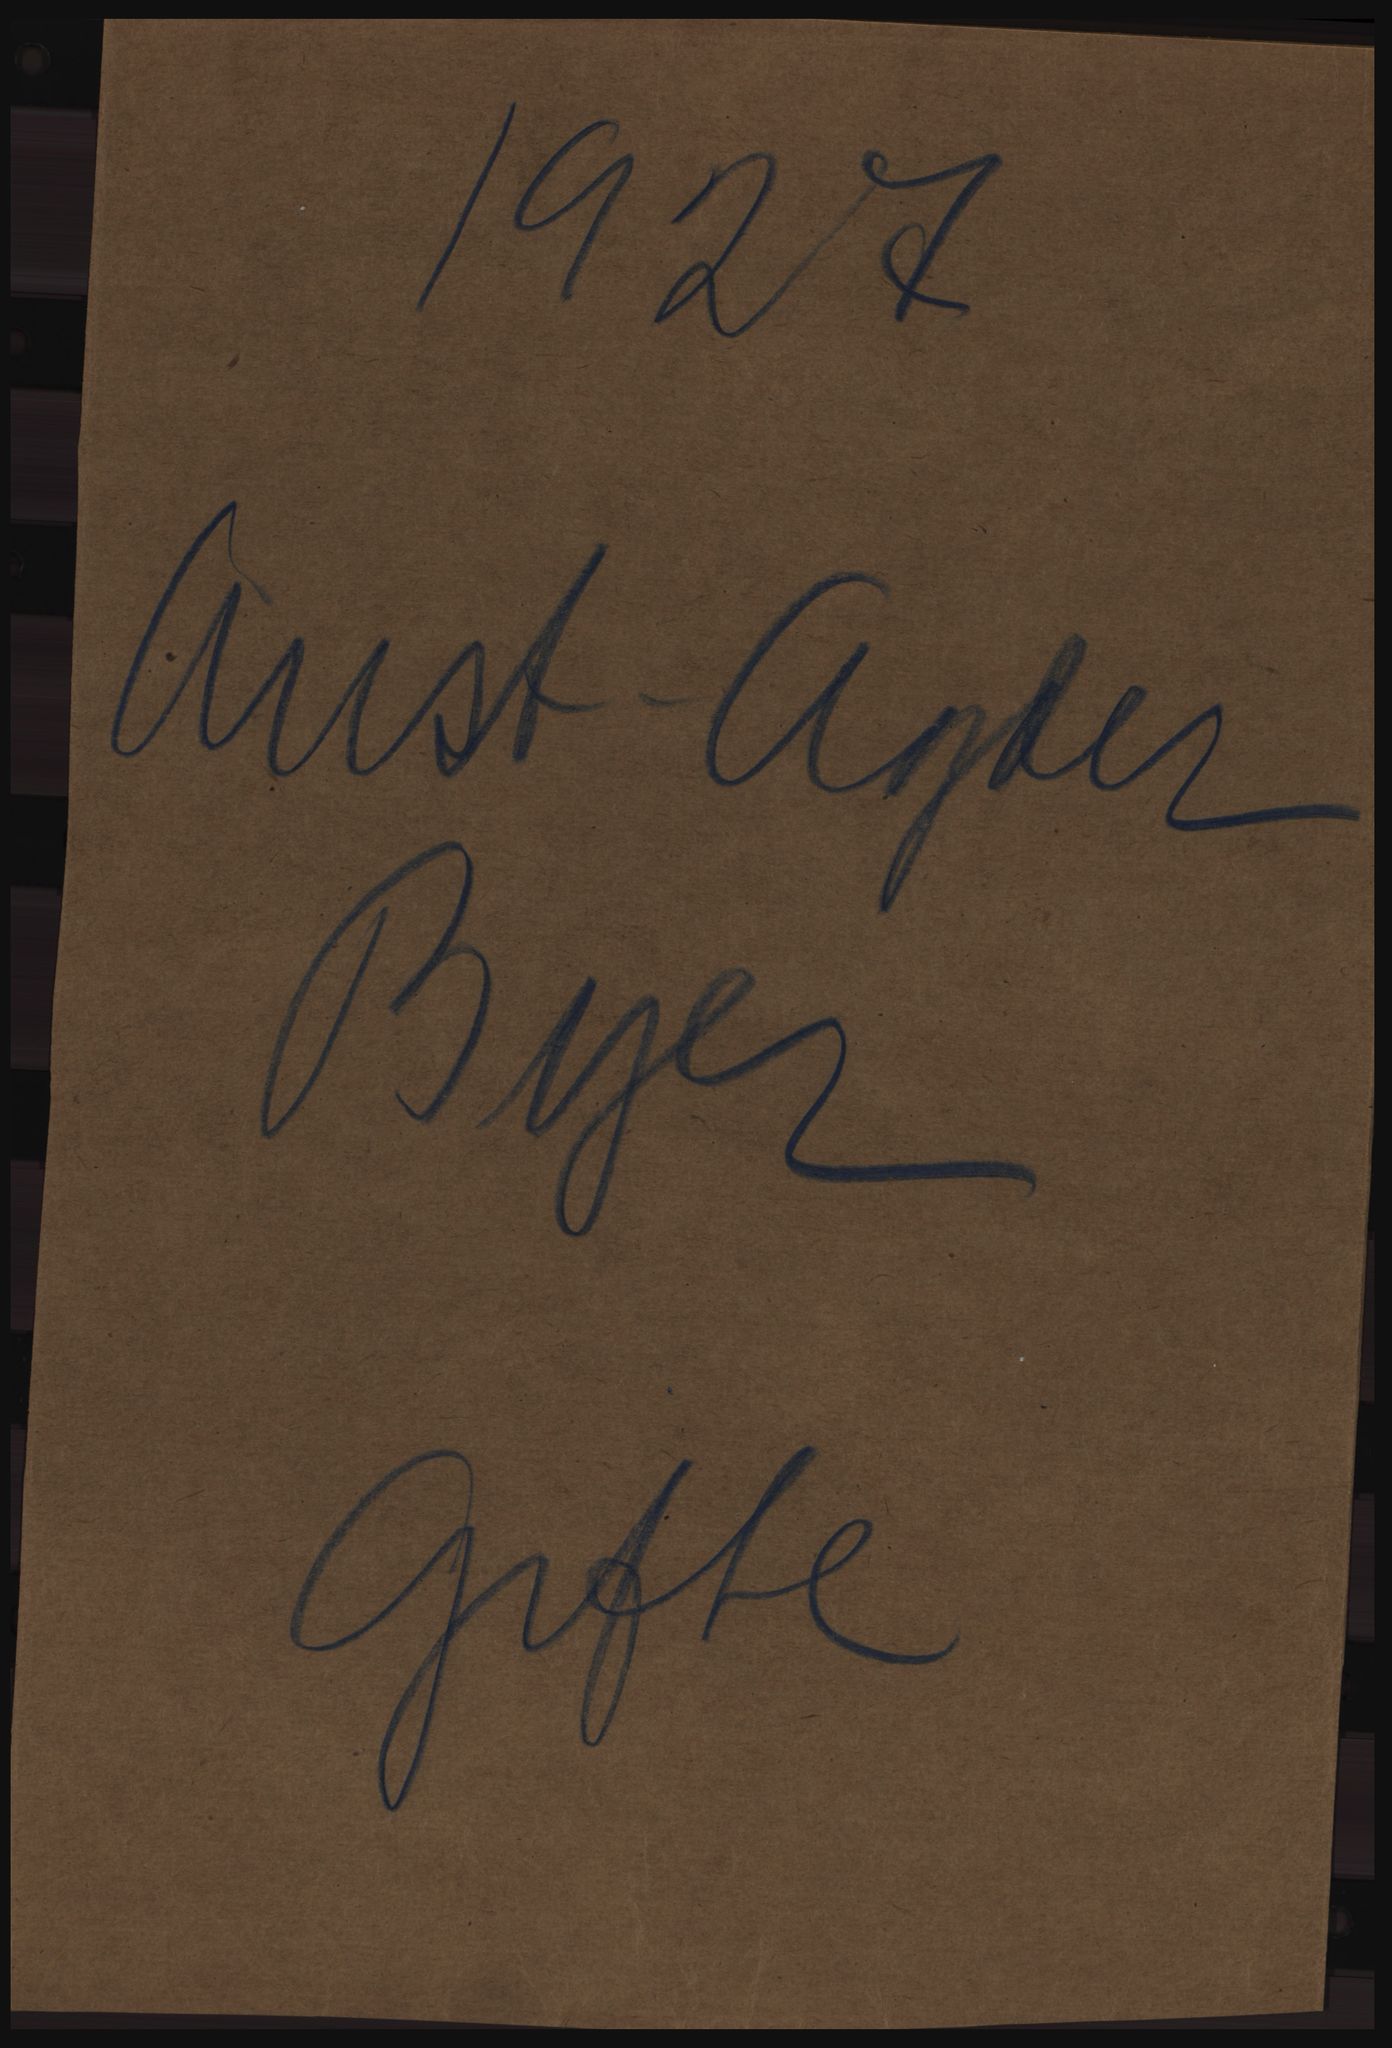 1927
Aust-Agder
Byer
Gifte